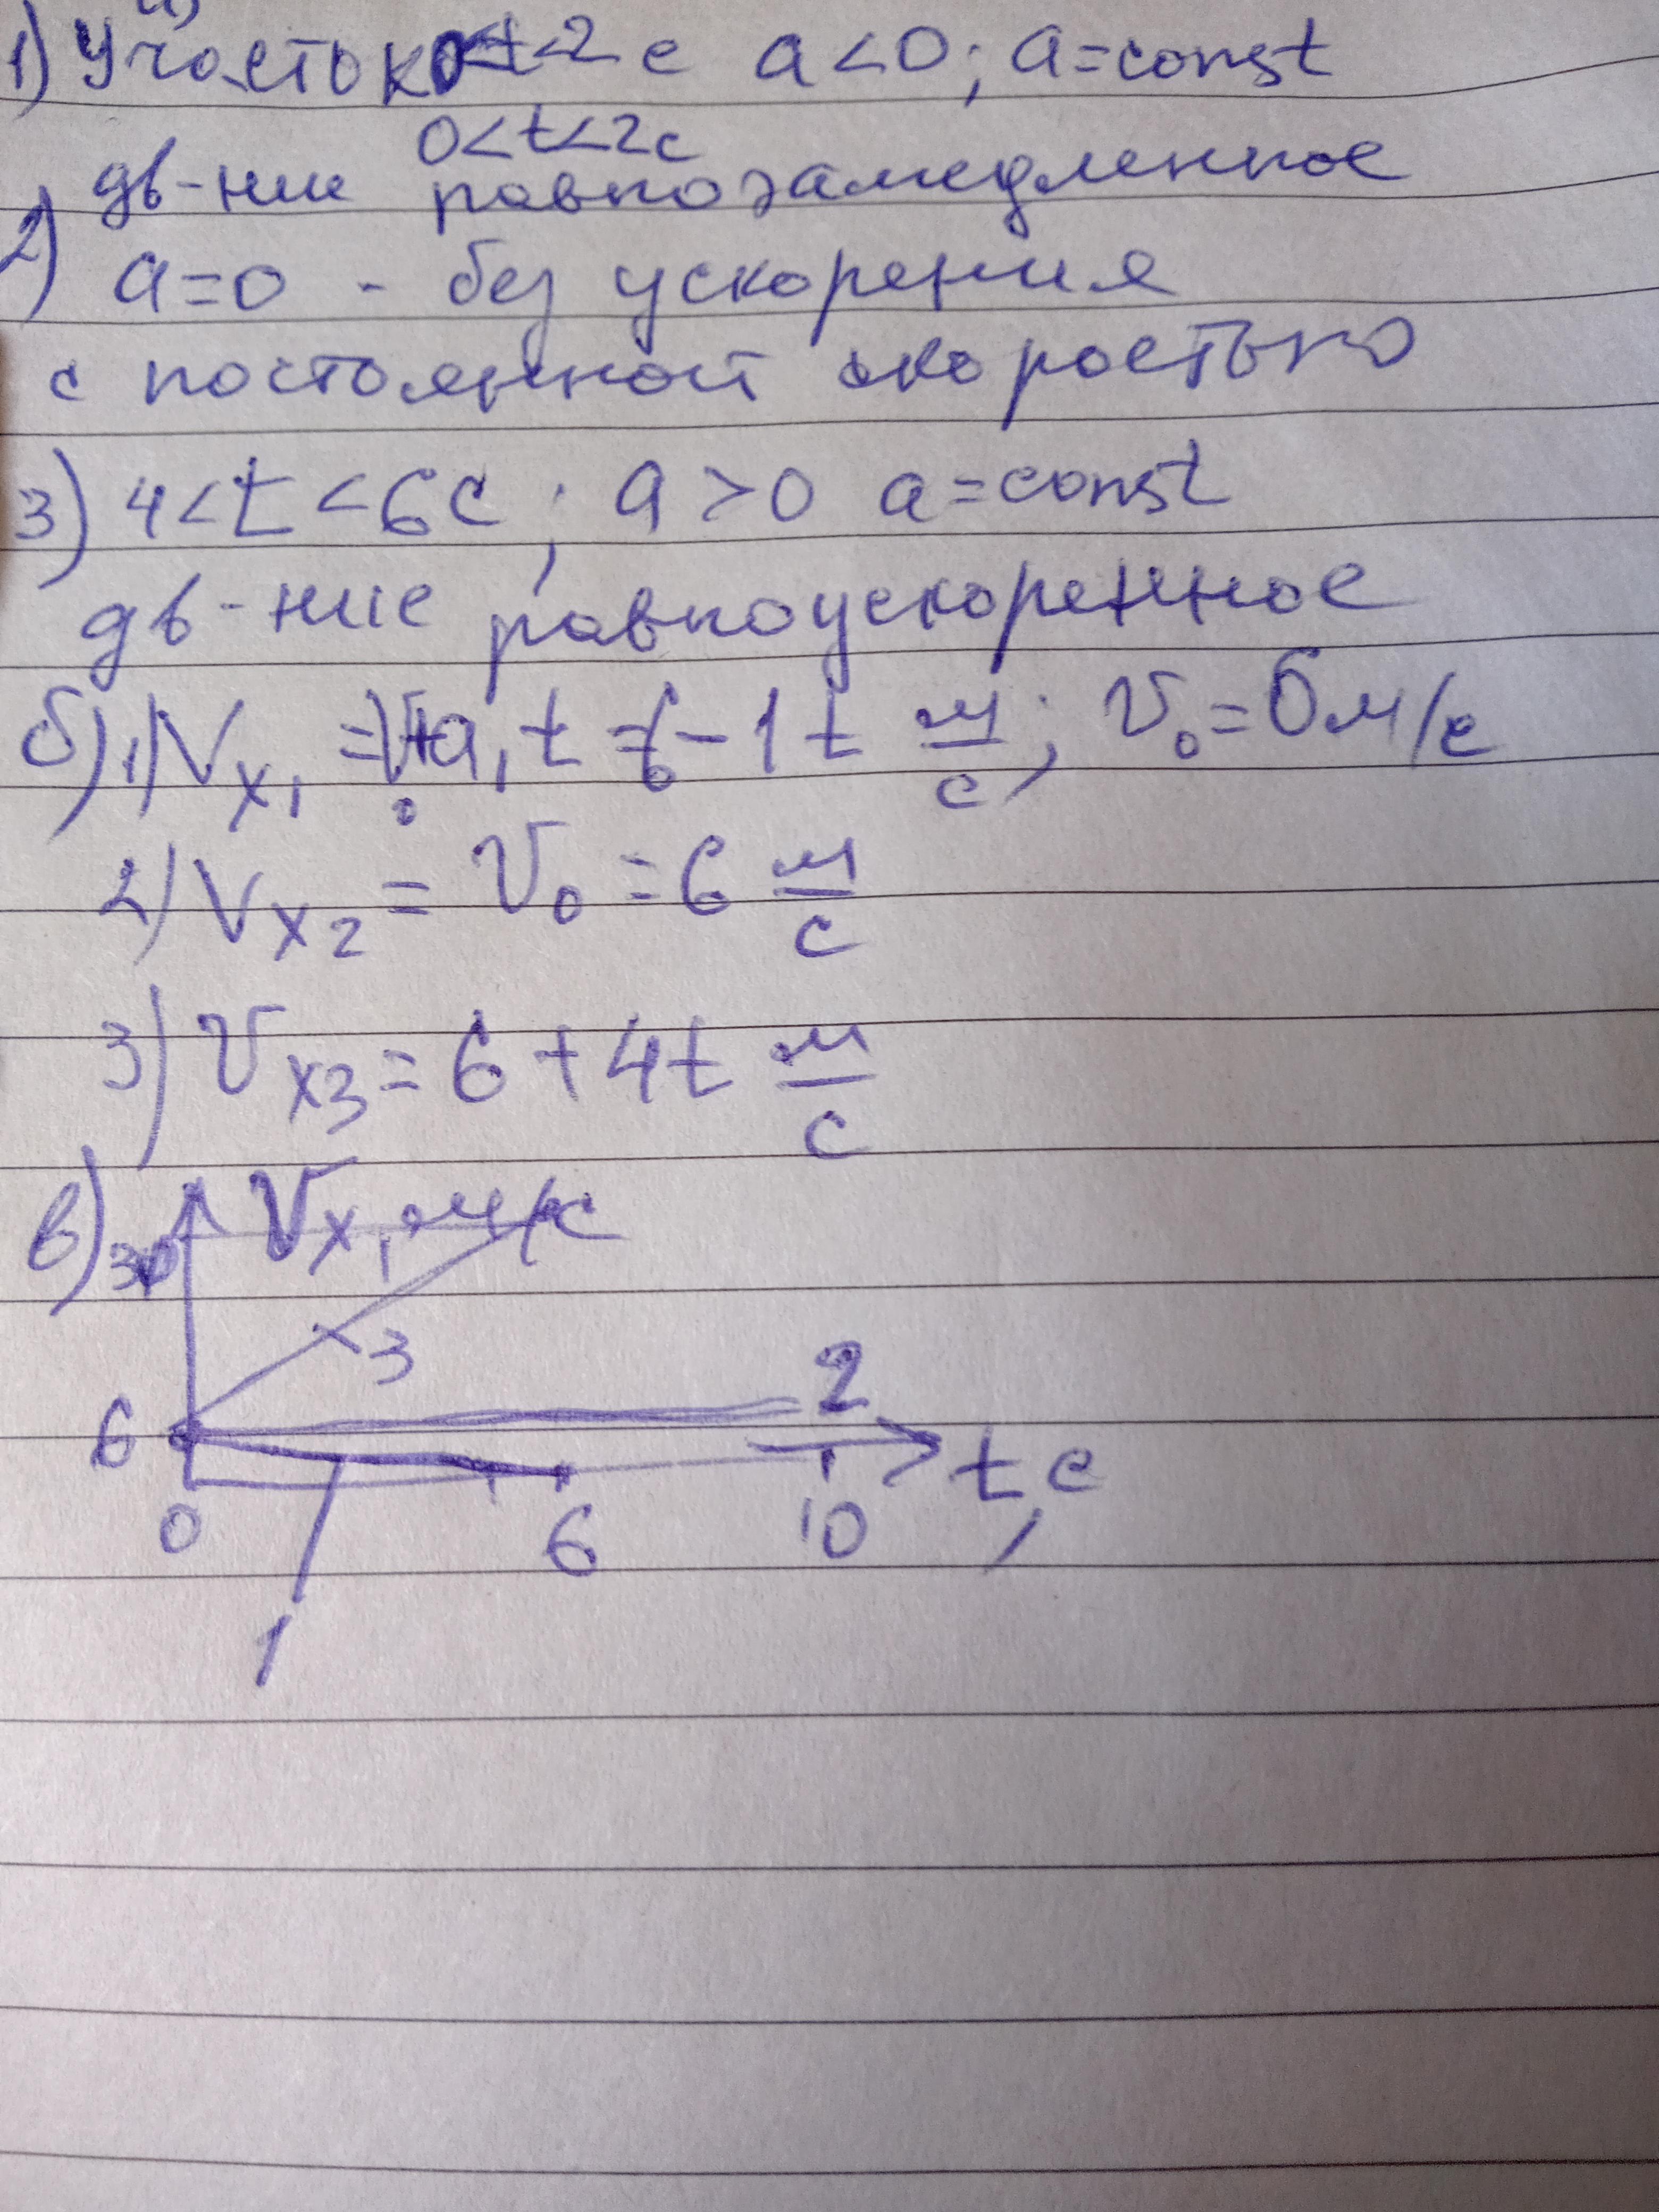 1) Участок 0<t<2 с a<0; a=const
0<t<2с
дв-ние равнозамедленное
2) a=0 - без ускорения
с постоянной скоростью
3) 4<t<6с; a>0 a=const
дв-ние равноускоренное
б) 1) Vx₁ = V₀+a₁t = 6-1t м/с; V₀=6м/с
2) Vx₂ = V₀ = 6 м/с
3) Vx3 = 6+4t м/с
в) Vx, м/с
30
3
2
6
t, с
0 6 10
1